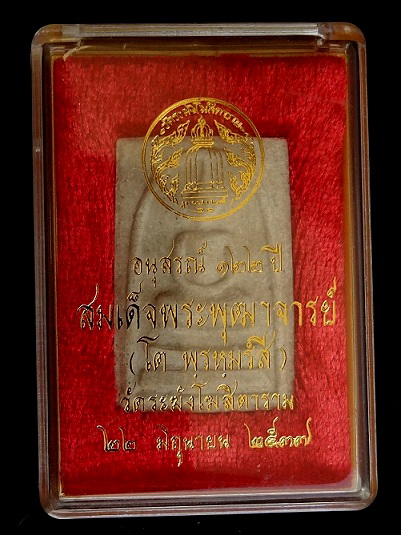 อนุสรณ์ ๑๒๒ ปี
สมเด็จพระพุฒาจารย์
(โต พรหมรังสี)
วัดระฆังโฆสิตาราม
๒๒ มิถุนายน ๒๕๓๗